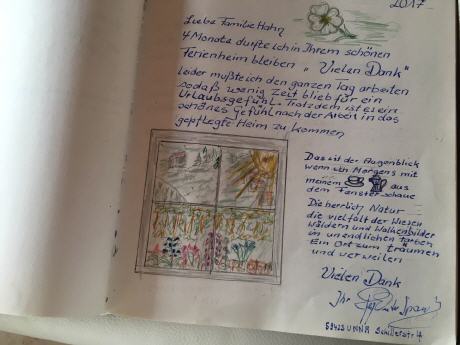 2017
Liebe Familie Hahn
4 Monate durfte ich in Ihrem schönen
Ferienheim bleiben „Vielen Dank"
leider mußte ich den ganzen Tag arbeiten
sodaß wenig Zeit blieb für ein
Urlaubsgefühl. Trotzdem ist es ein
schönes Gefühl nach der Arbeit in das
gepflegte Heim zu kommen
Das ist der Augenblick
wenn ich Morgens mit
meinem aus
dem Fenster schaue
Die herrlich Natur
die vielfalt der Wiesen
Wäldern und Wolkenbilder
in unendlichen farben
Ein Ort zum träumen
und verweilen
Vielen Dank
Ihr
59423 UNNA Schillerstr 4